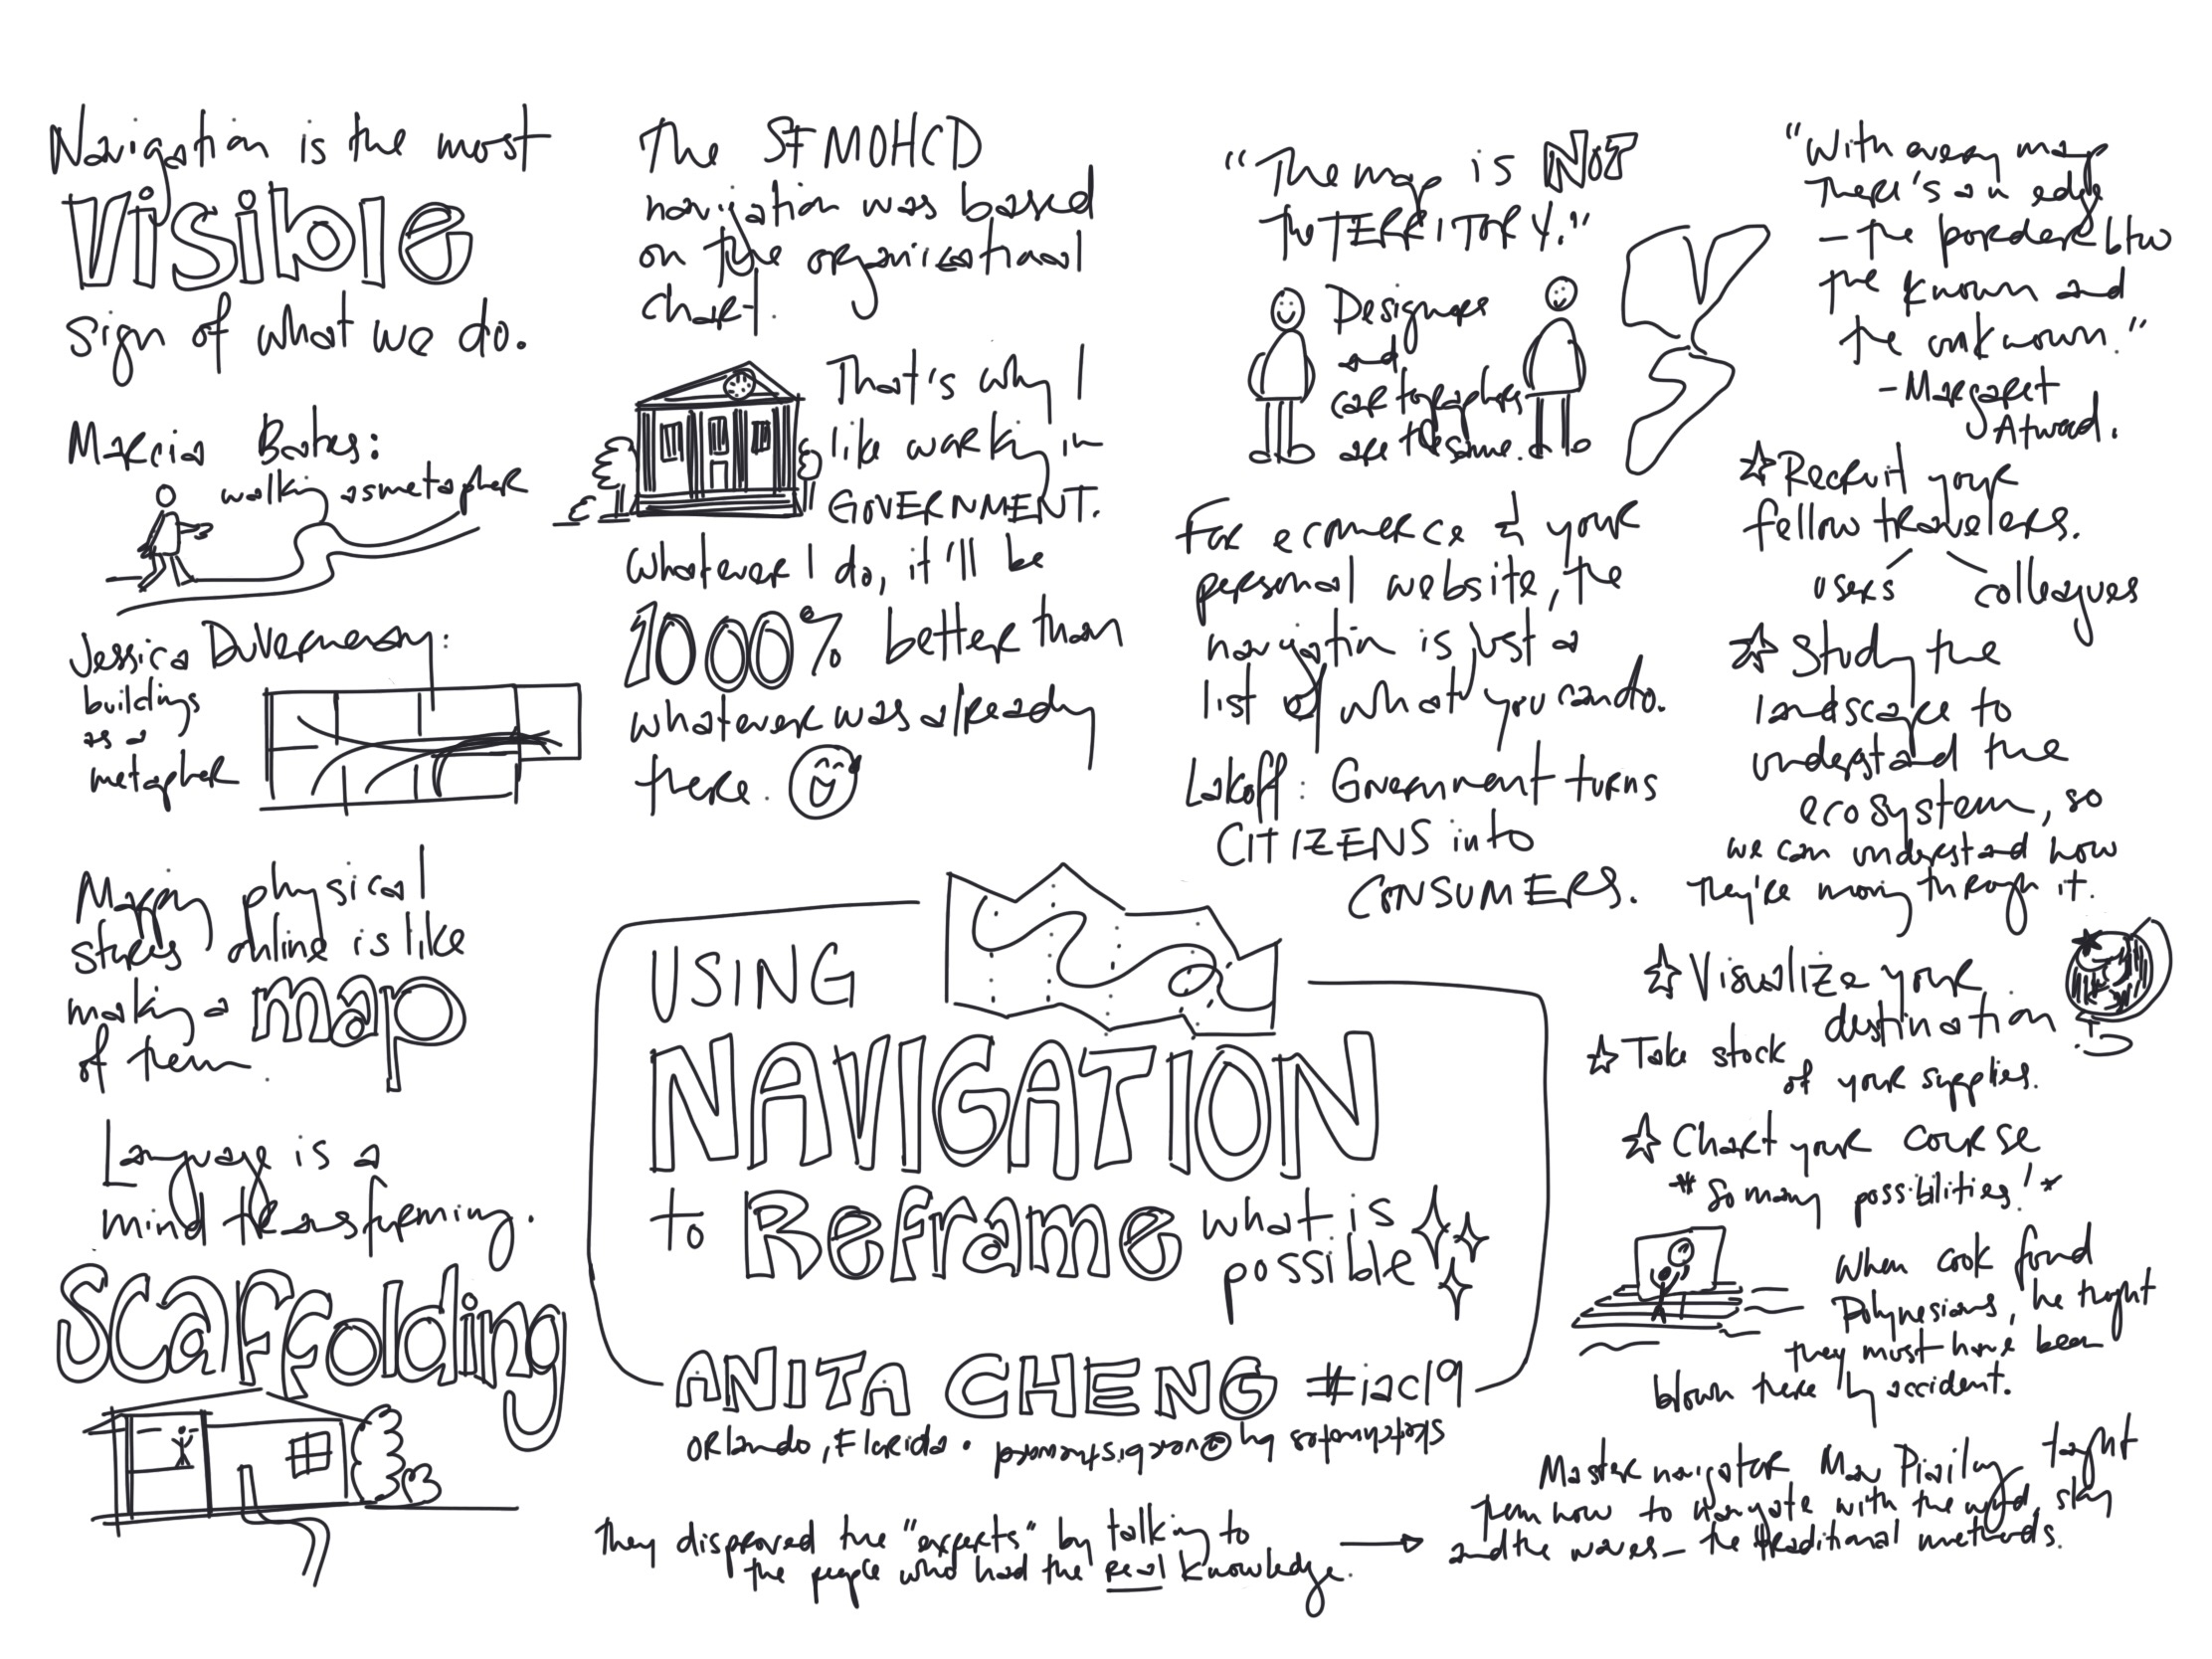 Navigation is the most
Visible
sign of what we do.
Marcia Bates:
walking as metapher
Jessica DuVerneay:
buildings
as a
metapher
Many physical
stores online is like
making a map
of them.
Language is a
mind transforming.
Scaffolding
The SFMOHCD
navigation was based
on the organizational
chart.
That's why I
like working in
GOVERNMENT.
Whatever I do, it'll be
1000% better than
whatever was already
there.
"The map is NOT
the TERRITORY."
Designers
and
cartographers
are the same.
For ecomerce & your
personal website, the
navigatin is just a
list of what you can do.
Lakoff: Government turns
CITIZENS into
CONSUMERS.
"With every map
there's an edge
– the border btw
the known and
the unknown."
– Margaret
Atwood.
☆ Recruit your
fellow travelers.
users colleagues
☆ Study the
landscape to
understand the
ecosystem, so
we can understand how
they're moving through it.
☆ Visualize your
destination
☆ Take stock
of your supplies.
☆ Chart your course
*so many possibilities!*
When Cook found
Polynesians, he thought
they must have been
blown there by accident.
Master navigator Mau Piailug taught
them how to navigate with the wind, sky
and the waves – the traditional methods.
They disproved the "experts" by talking to →
the people who had the real knowledge.
USING
NAVIGATION
to Reframe what is
possible
ANITA CHENG #iac19
Orlando, Florida.
Sketchnotes by